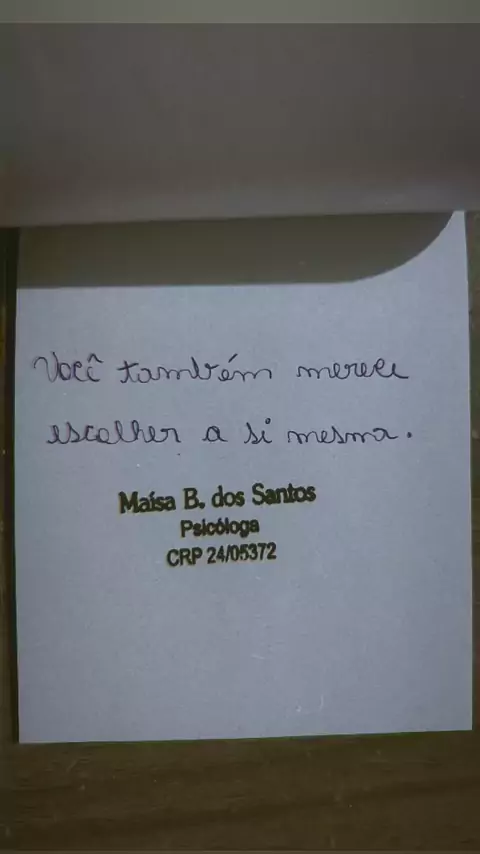 Você também merece
escolher a si mesma.
Maísa B. dos Santos
Psicóloga
CRP 24/05372